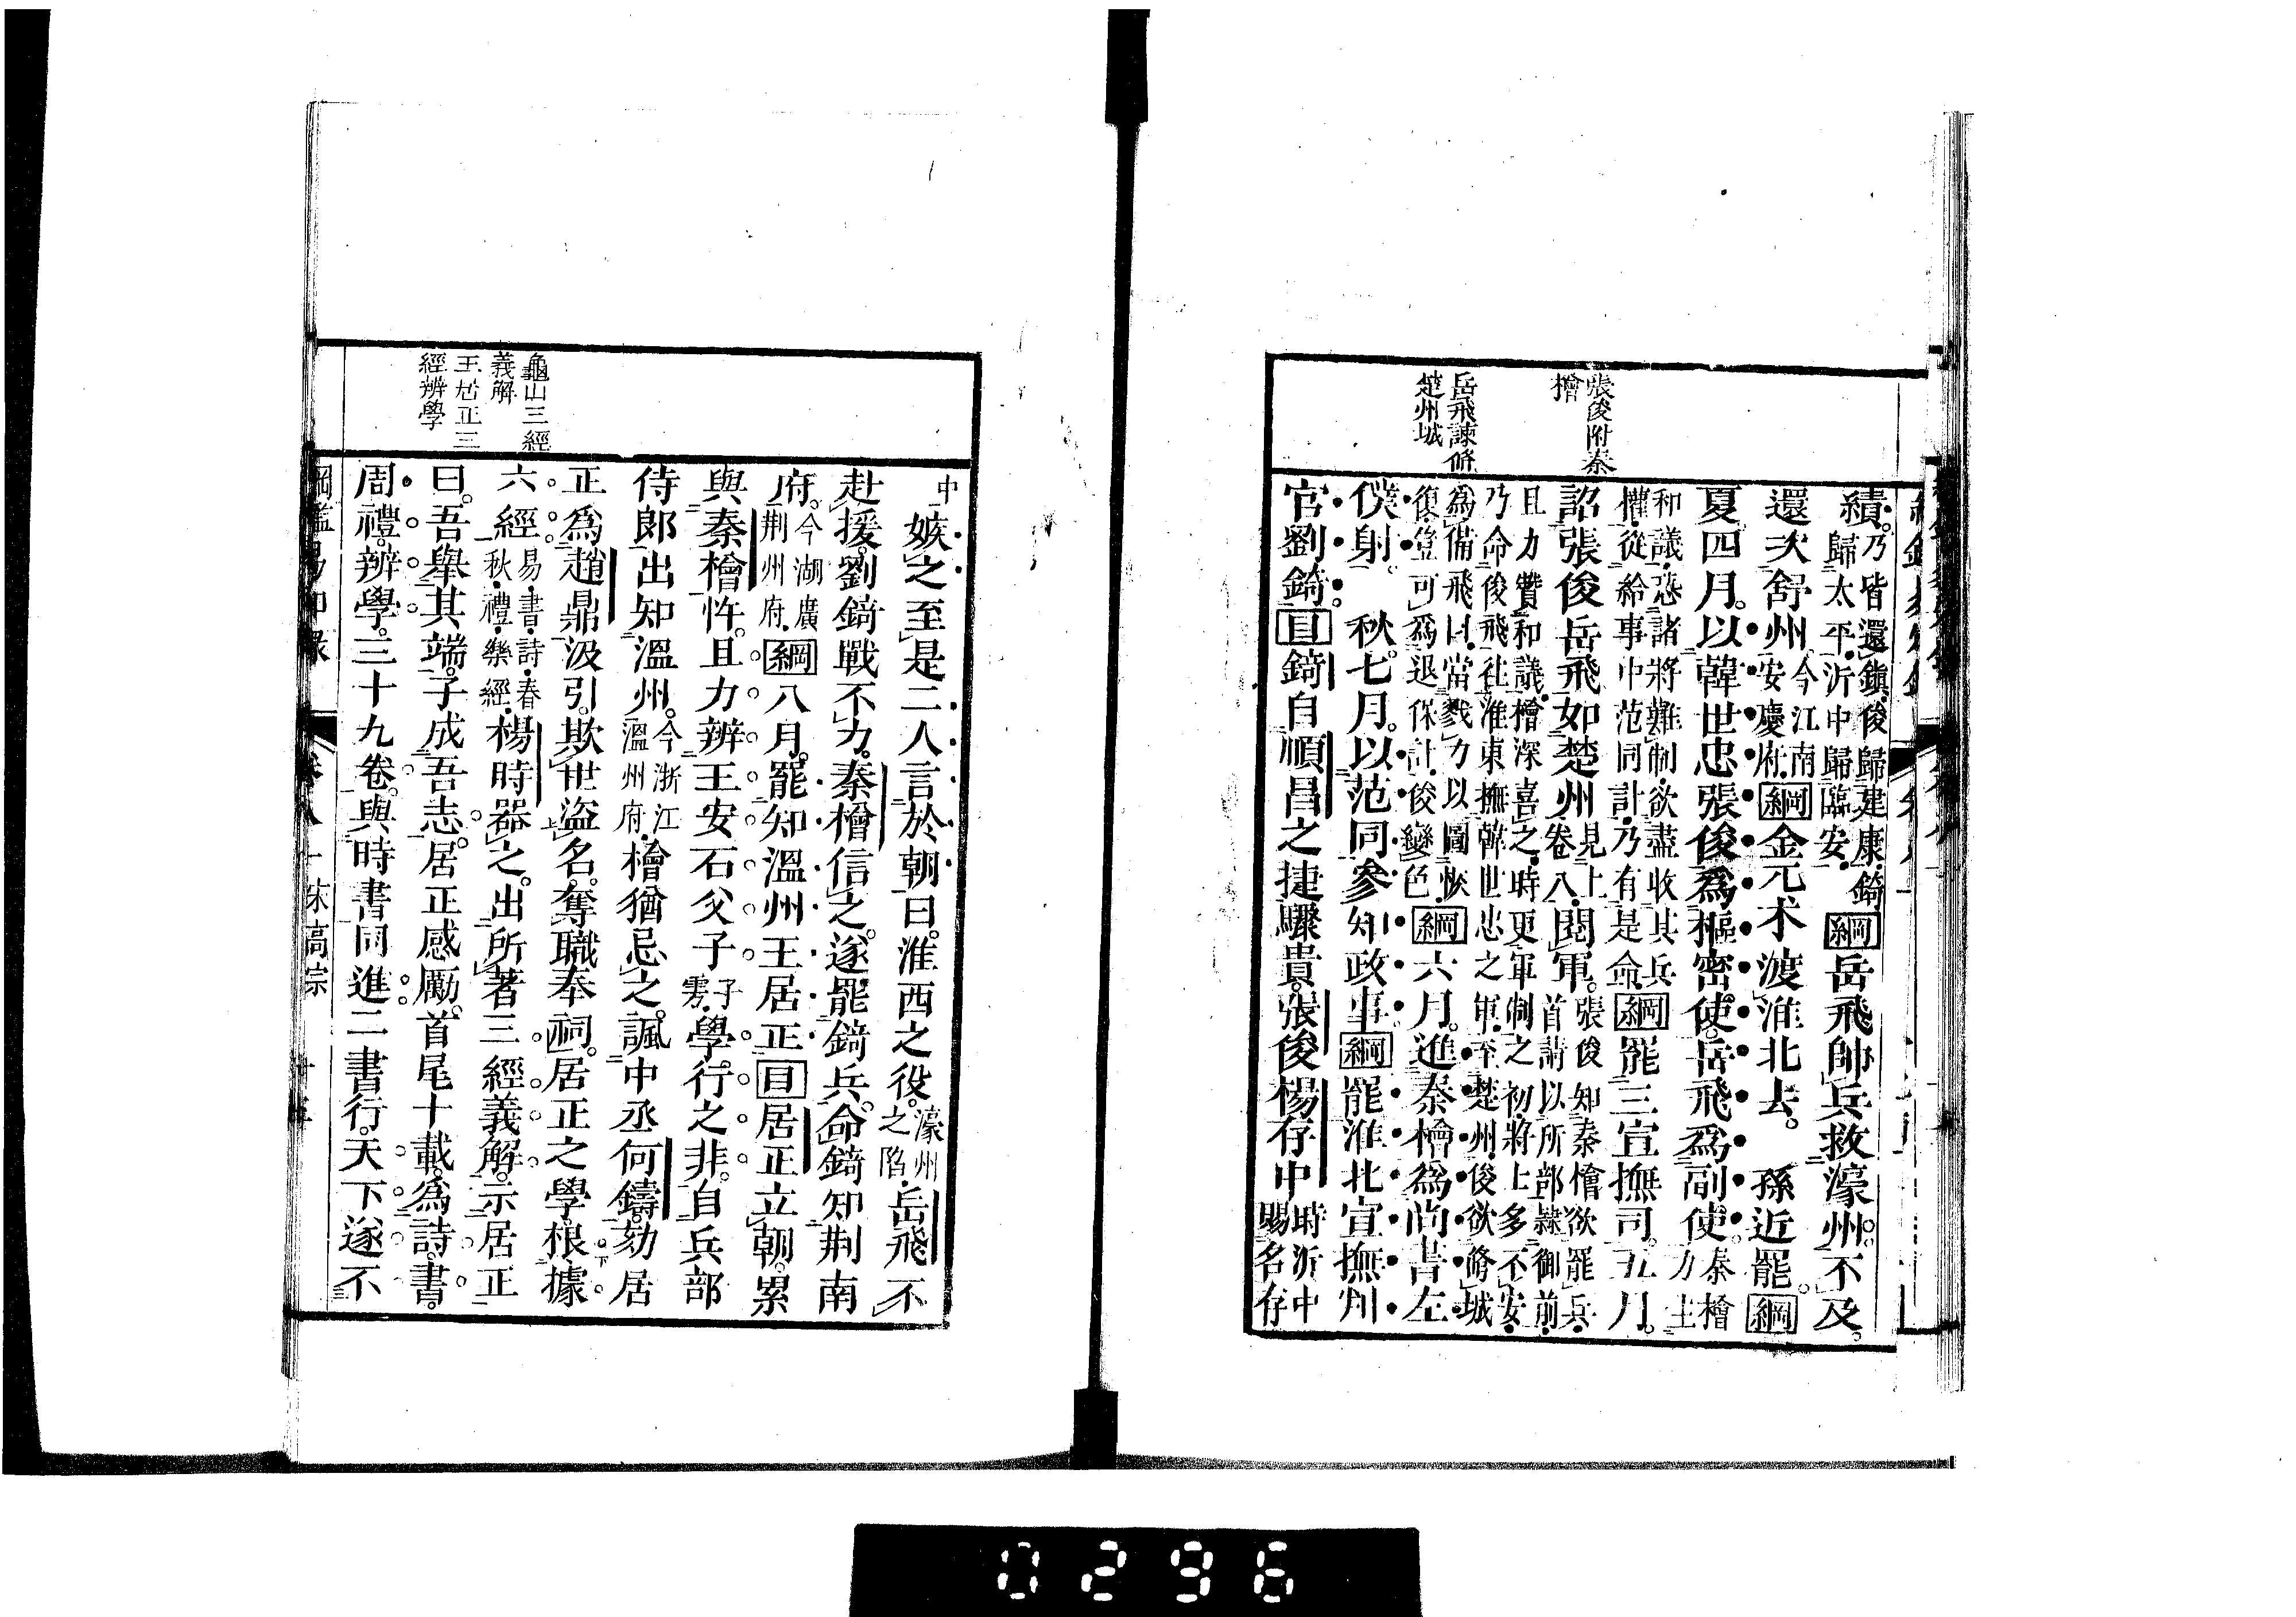 張俊附秦
檜
岳飛諫脩
楚州城
績。乃皆還鎮。俊歸建康。錡歸太平。沂中歸臨安。綱岳飛帥兵救濠州。不及。
還次舒州。今江南安慶府。綱金元朮渡淮北去。　孫近罷。綱
夏四月。以韓世忠張俊爲樞密使。岳飛爲副使。秦檜力主
和議。恐諸將難制。欲盡收其兵權。從給事中范同計。乃有是命。綱罷三宣撫司。五月。
詔張俊岳飛如楚州見上卷八。閱軍。張俊知秦檜欲罷兵。首請以所部隸御前。
且力贊和議。檜深喜之。時更軍制之初。將上多不安。乃命俊飛往淮東撫韓世忠之軍。至楚州。俊欲脩城
爲備。飛曰。當戮力以圖恢復。豈可爲退保計。俊變色。綱六月。進秦檜爲尚書左
僕射。　秋七月。以范同參知政事。綱罷淮北宣撫判
官劉錡。目錡自順昌之捷驟貴。張俊楊存中時沂中賜名存
龜山三經
義解
王居正三
經辨學
中嫉之。至是二人言於朝曰。淮西之役。濠州之陷。岳飛不
赴援。劉錡戰不力。秦檜信之。遂罷錡兵。命錡知荆南
府。今湖廣荆州府。綱八月。罷知溫州王居正。目居正立朝。累
與秦檜忤。且力辨王安石父子子雱。學行之非。自兵部
侍郎出知溫州。今浙江溫州府。檜猶忌之。諷中丞何鑄。劾居
正爲趙鼎汲引。欺世盜名。奪職奉祠。居正之學。根據
六經。易書詩春秋禮樂經。楊時器之。出所著三經義解。示居正
曰。吾舉其端。子成吾志。居正感勵。首尾十載。爲詩書
周禮辨學。三十九卷。與時書同進。二書行。天下遂不
綱鑑易知錄　卷八十　宋高宗